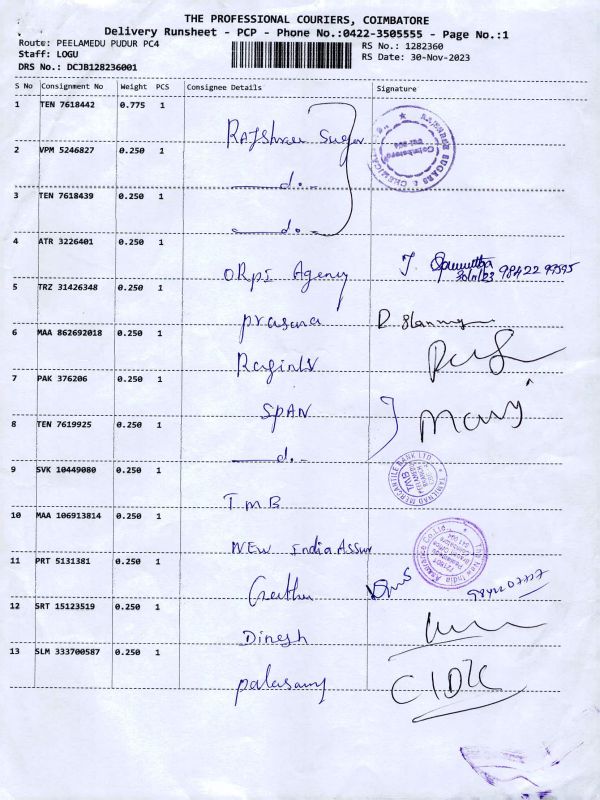 THE PROFESSIONAL COURIERS, COIMBATORE
Delivery Runsheet - PCP - Phone No.:0422-3505555 - Page No.:1
Route: PEELAMEDU PUDUR PC4
Staff: LOGU
DRS No.: DCJB128236001
RS No.: 1282360
RS Date: 30-Nov-2023
S No Consignment No Weight PCS Consignee Details Signature
1 TEN 7618442 0.775 1
Rajshree Sugar
2 VPM 5246827 0.250 1
do
3 TEN 7618439 0.250 1
do
4 ATR 3226401 0.250 1
ORPI Agency
30/11/23 98422 99595
5 TRZ 31426348 0.250 1
prasana
6 MAA 862692018 0.250 1
7 PAK 376206 0.250 1
SPAN
Mary
8 TEN 7619925 0.250 1
do
9 SVK 10449080 0.250 1
TMB
TAMILNAD MERCANTILE BANK LTD
10 MAA 106913814 0.250 1
NEW India Assur
11 PRT 5131381 0.250 1
12 SRT 15123519 0.250 1
Dinesh
13 SLM 333700587 0.250 1
palasamy